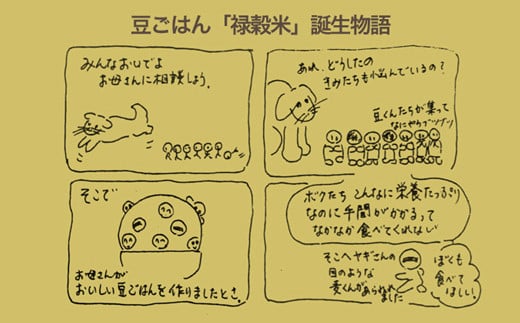 豆ごはん「禄穀米」誕生物語
あれ、どうしたの
きみたちも悩んでいるの?
豆くんたちが集って
なにやらブツブツ
ボクたち こんなに栄養たっぷり
なのに 手間がかかるって
なかなか食べてくれない
そこへヤギさんの
目のような
麦くんがあらわれ
ました
ぼくも
食べて
ほしい!
みんなおいでよ
お母さんに相談しよう。
そこで
お母さんが
おいしい豆ごはんを作りましたとさ。